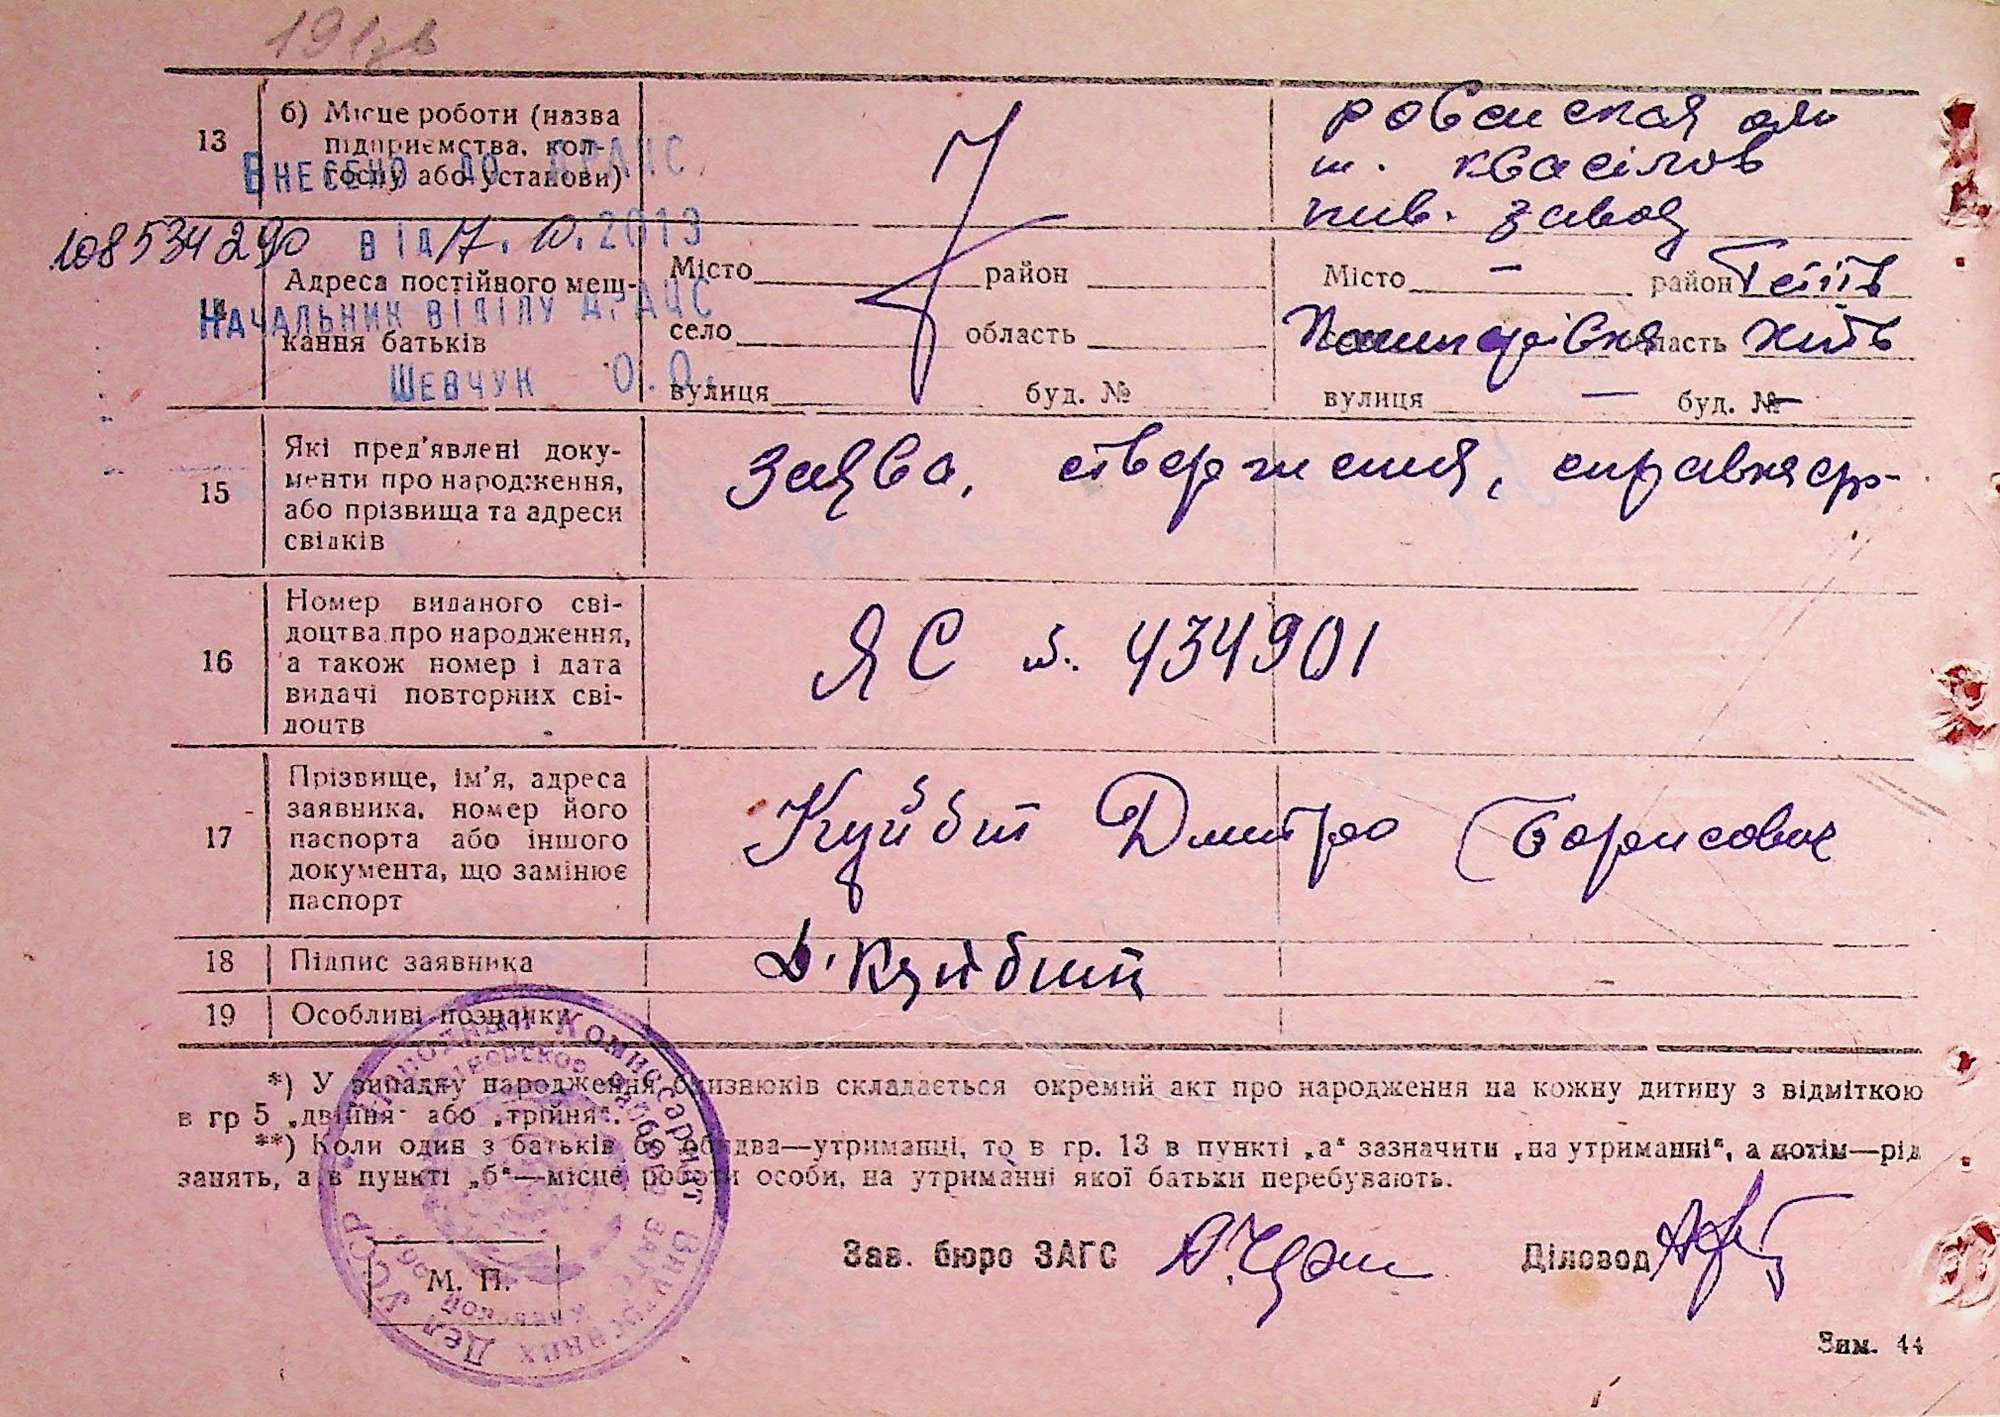 191зв
13
б) Місце роботи (назва
підприємства, кол-
госпу або установи)
ровенская
квасілов
пив. завод
Внесено до ДРАЦС
108534290 від 17. 10. 2013
Начальник відділу ДРАЦС
Шевчук О. О.
Адреса постійного меш-
кання батьків
Місто район
село область
вулиця буд. №
Місто — район Тетіїв
область
вулиця — буд. № —
15
Які пред'явлені доку-
менти про народження,
або прізвища та адреси
свідків
заява, ствердження, справка
16
Номер виданого сві-
доцтва про народження,
а також номер і дата
видачі повторних сві-
доцтв
ЯС 434901
17
Прізвище, ім'я, адреса
заявника, номер його
паспорта або іншого
документа, що замінює
паспорт
Куйбіт Дмитро Борисович
18 Підпис заявника
Д.
19 Особливі познанки
*) У випадку народження близнюків складається окремий акт про народження на кожну дитину з відміткою
в гр 5 „двійня" або „трійня".
**) Коли один з батьків бо обидва—утриманці, то в гр. 13 в пункті „а" зазначити „на утриманні", а потім—рід
занять, а в пункті „б"—місце роботи особи, на утриманні якої батьки перебувають.
Народный Комиссариат Внутренних Дел УССР
М. П.
Зав. бюро ЗАГС
Діловод
Зим. 44